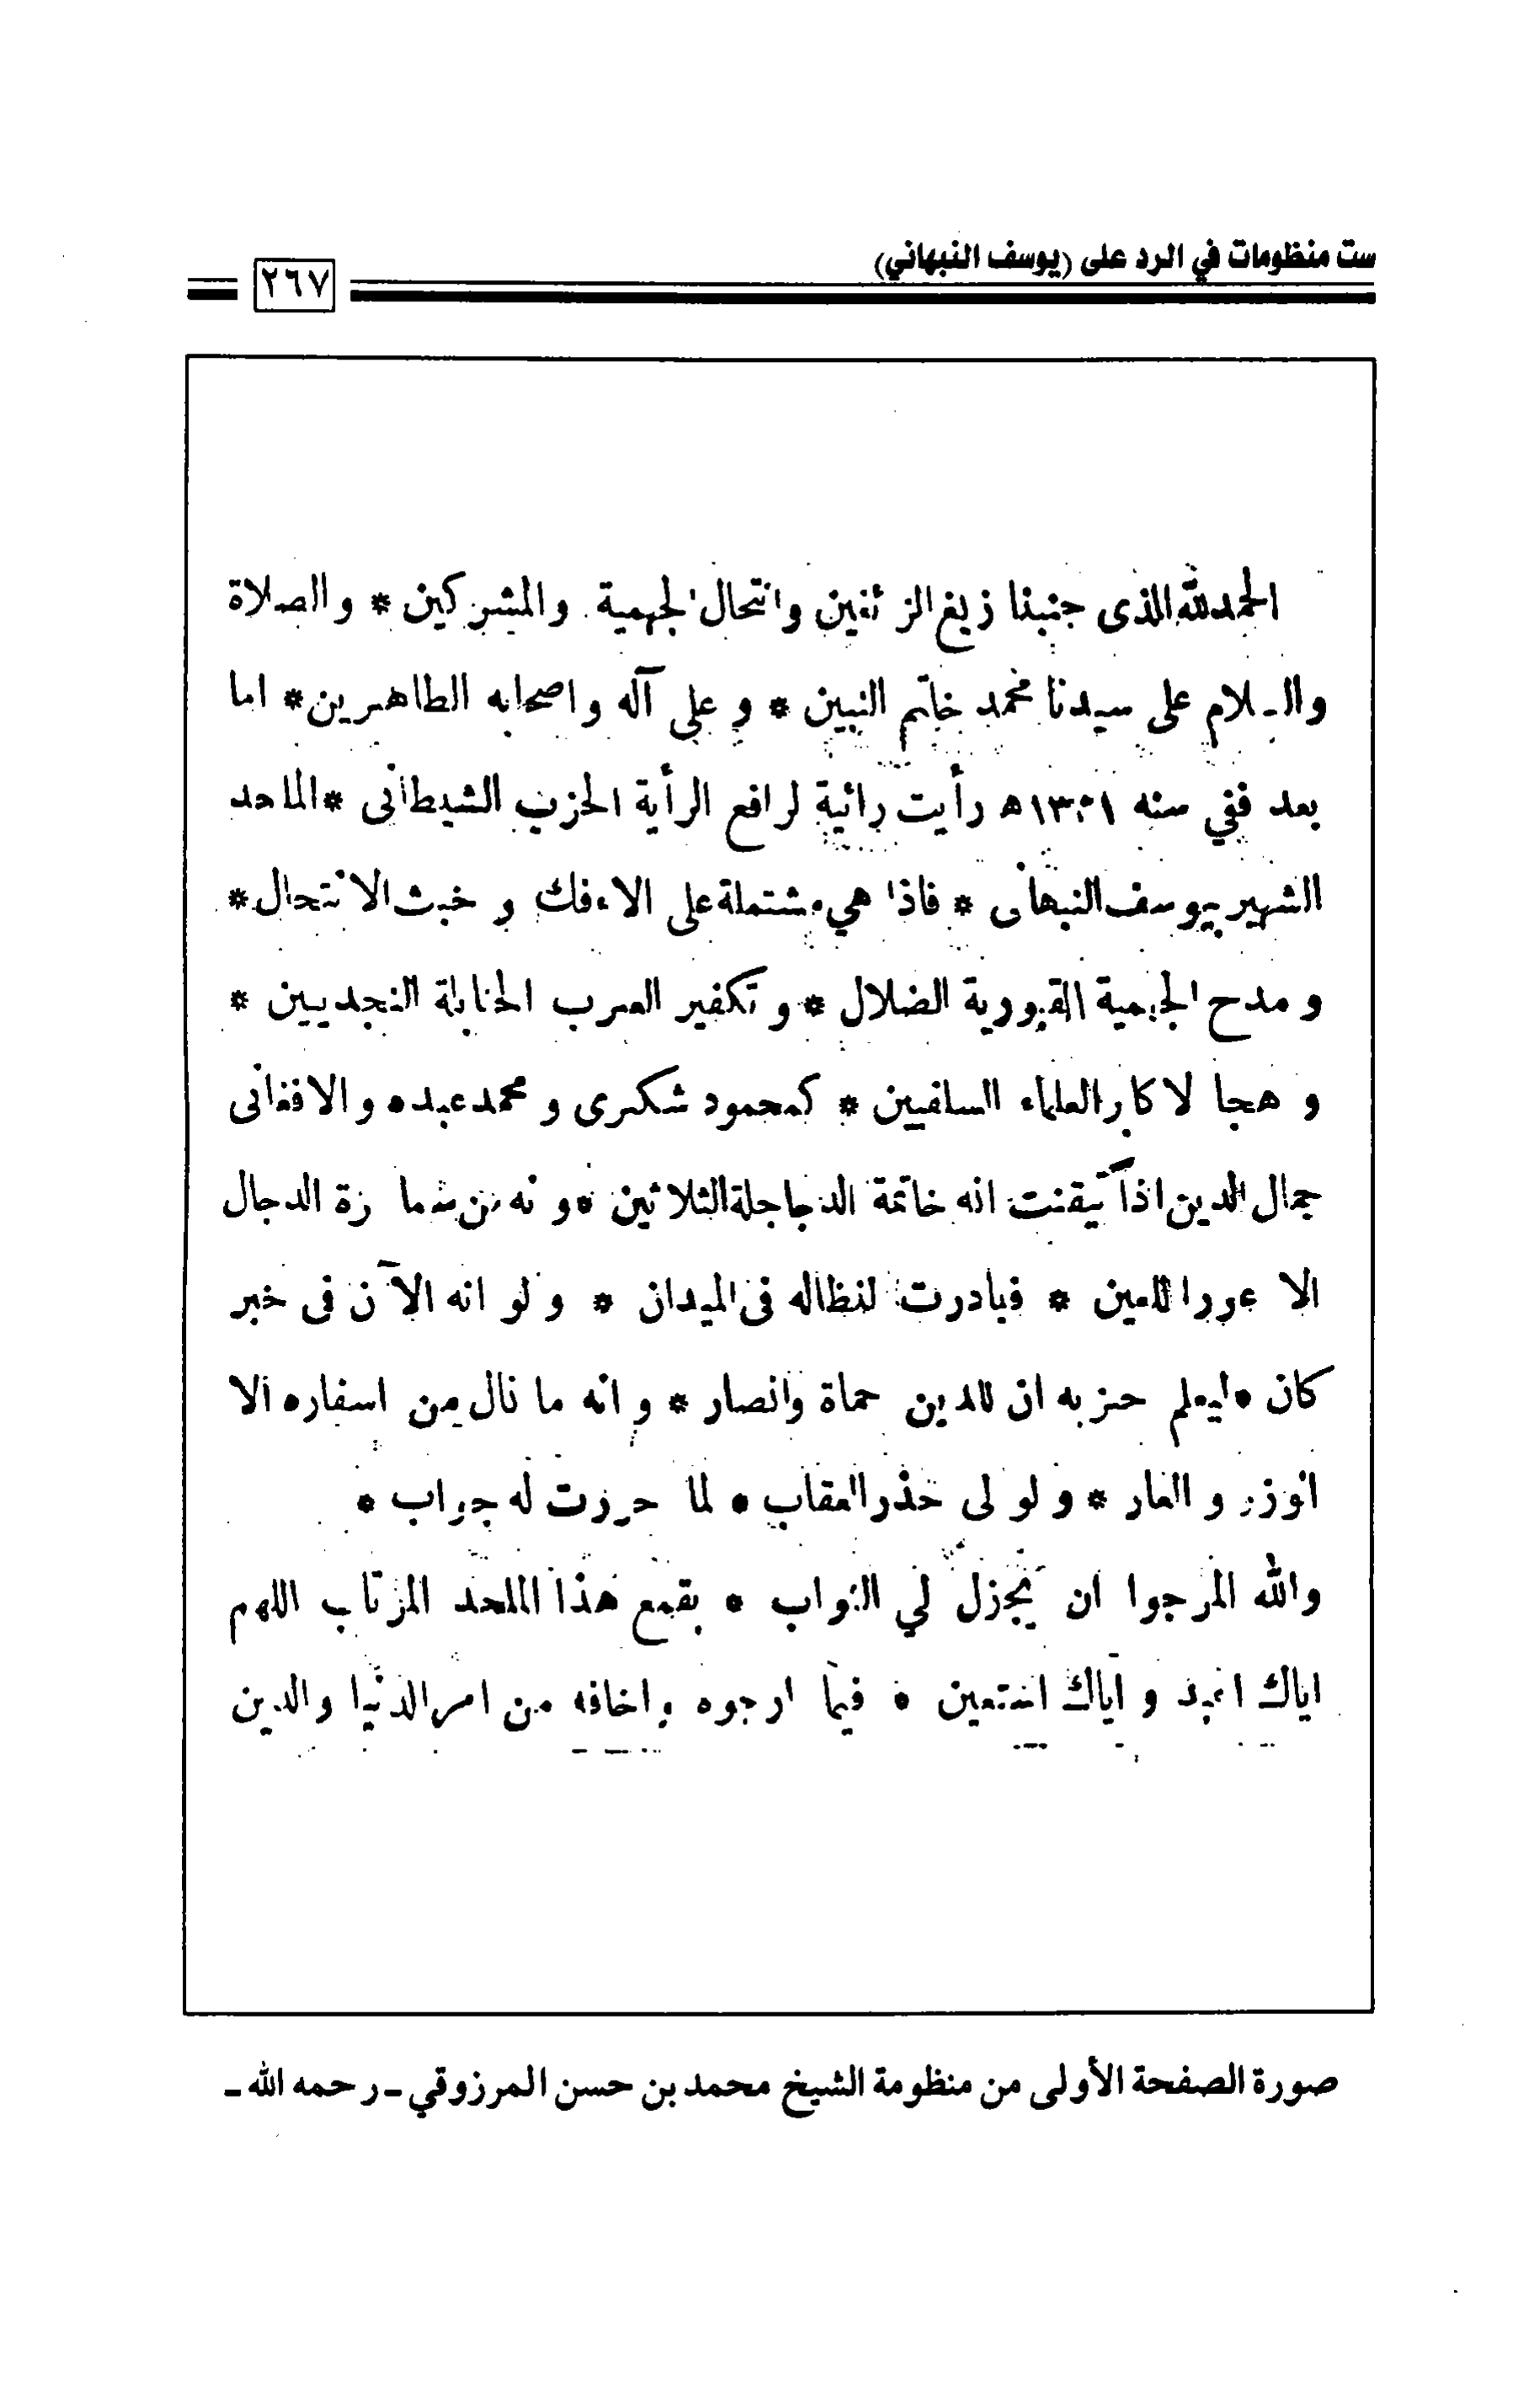 ست منظومات في الرد على (يوسف النبهاني)
٢٦٧
الحمد لله الذى جنبنا زيغ الزائغين وانتحال الجهمية والمشركين * والصلاة
والسلام على سيدنا محمد خاتم النبين * و على آله واصحابه الطاهرين * اما
بعد ففي سنه هـ رأيت رائية لرافع الرأية الحزب الشيطانى * الملحد
الشهير بيوسف النبهانى * فاذا هي مشتملة على الاءفك و خبث الانتحال *
و مدح الجهمية القبورية الضلال * و تكفير العرب الحنابلة النجديين *
و هجا لاكابر العلماء السلفيين * كمحمود شكرى و محمد عبده والافغانى
جمال الدين اذا تيقنت انه خاتمة الدجاجلة الثلاثين * و نه من الدجال
الاعور اللعين * فبادرت لنظاله فى الميدان * و لو انه الآن فى خبر
كان * ليعلم حزبه ان للدين حماة وانصار * و انه ما نال من اسفاره الا
الوزر و العار * و لو لى حذر العقاب * لما حررت له جواب *
والله المرجوا ان يجزل لي الثواب * بقمع هذا الملحد المرتاب اللهم
اياك انعبد و اياك انستعين * فيما ارجوه واخافه من امر الدنيا والدين
صورة الصفحة الأولى من منظومة الشيخ محمد بن حسن المرزوقي ـ رحمه الله ـ